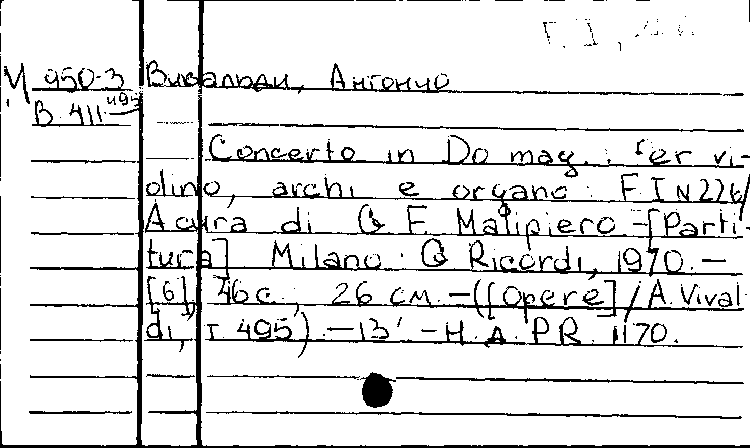 М 950-3 Вивальди, Антонио
В 411 495
Concerto in Do mag. : Per vi-
olino, archi e organo : F. I N 226/
A cura di G. F. Malipiero. - [Parti-
tura] Milano : G. Ricordi, 1970. -
[6], 46 c.; 26 см. - ([Opere] / A. Vival-
di, т. 495). - 13'. - Н. Д. P. R. 1170.